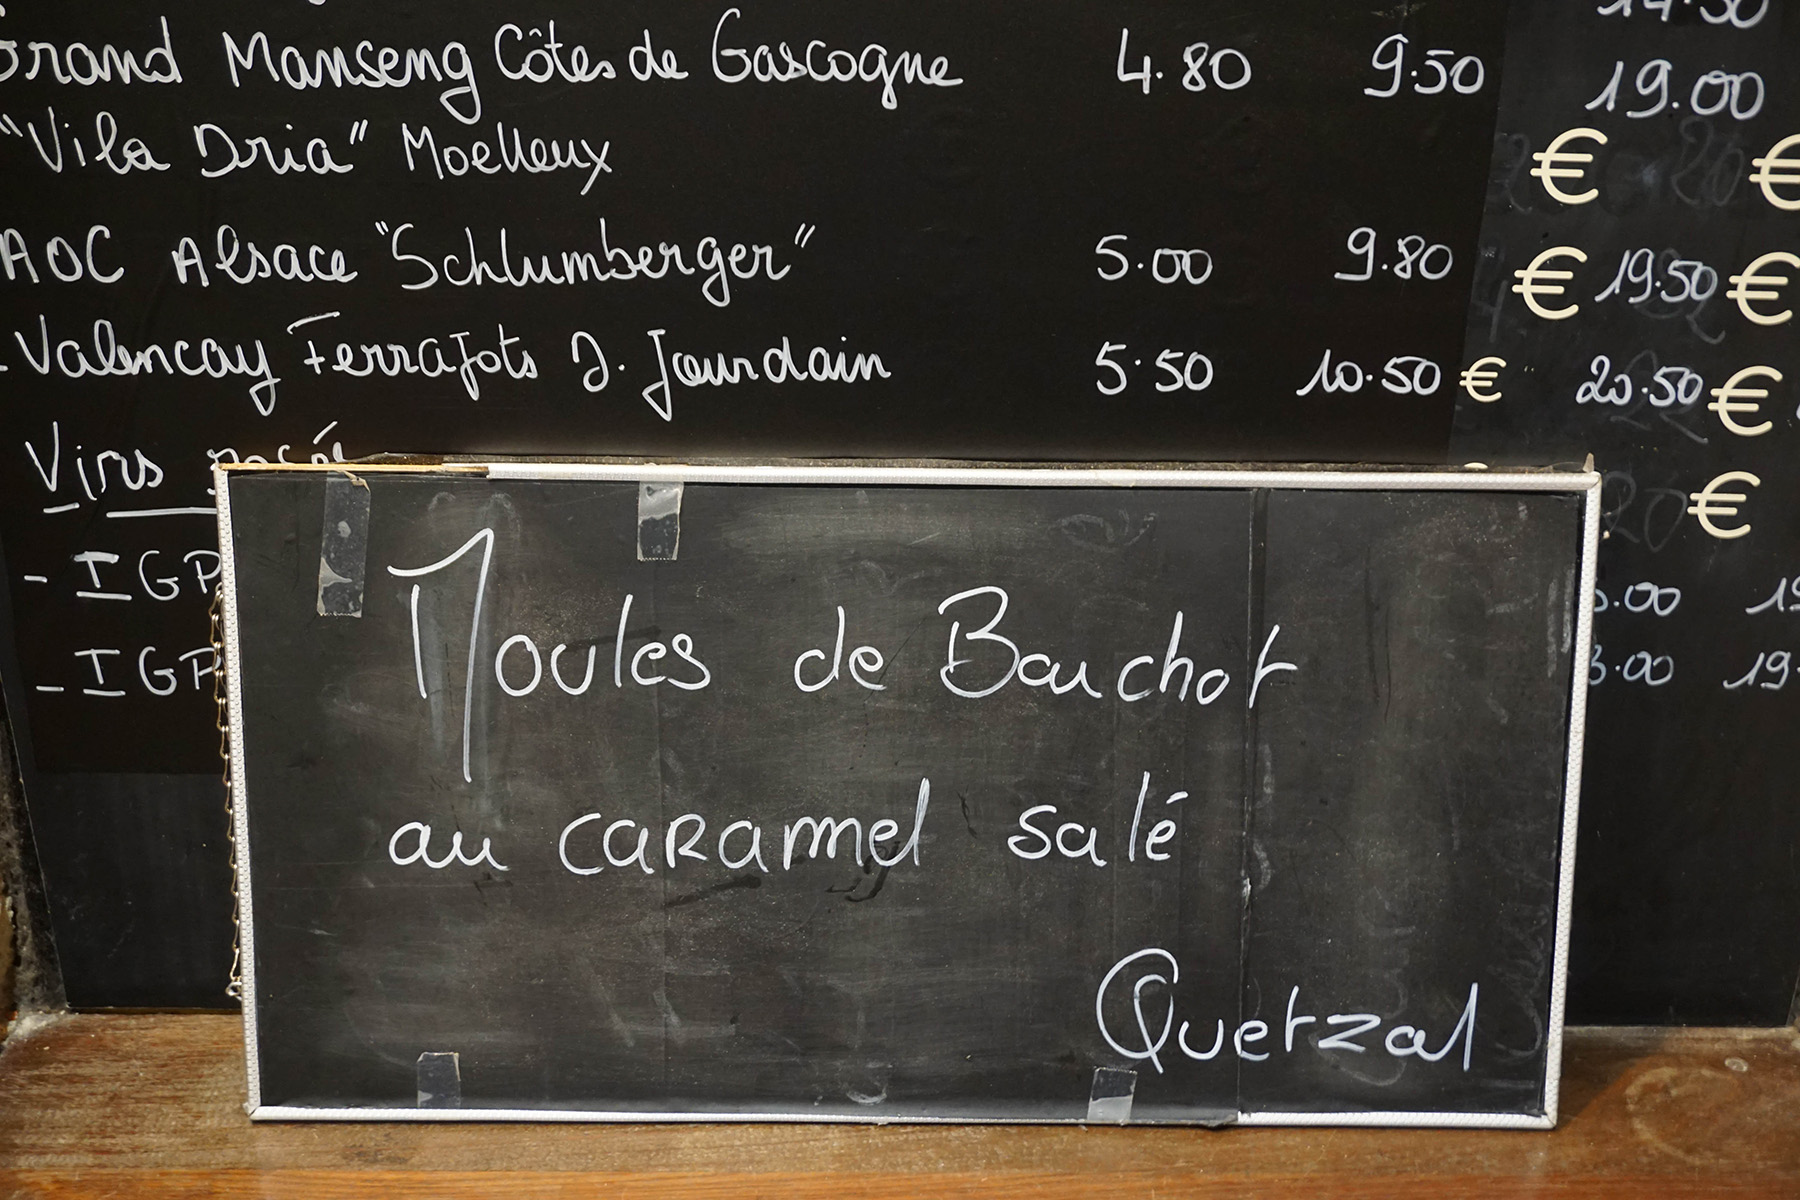 Grand Manseng Côtes de Gascogne 4.80 9.50 19.00
"Vila Dria" Moelleux € €
AOC Alsace "Schlumberger" 5.00 9.80 € 19.50 €
-Valencay Ferrajots J. Jourdain 5.50 10.50 € 20.50 €
Vins rosé €
- IGP .00
- IGP 3.00 19.
Moules de Bouchot
au caramel salé
Quetzal